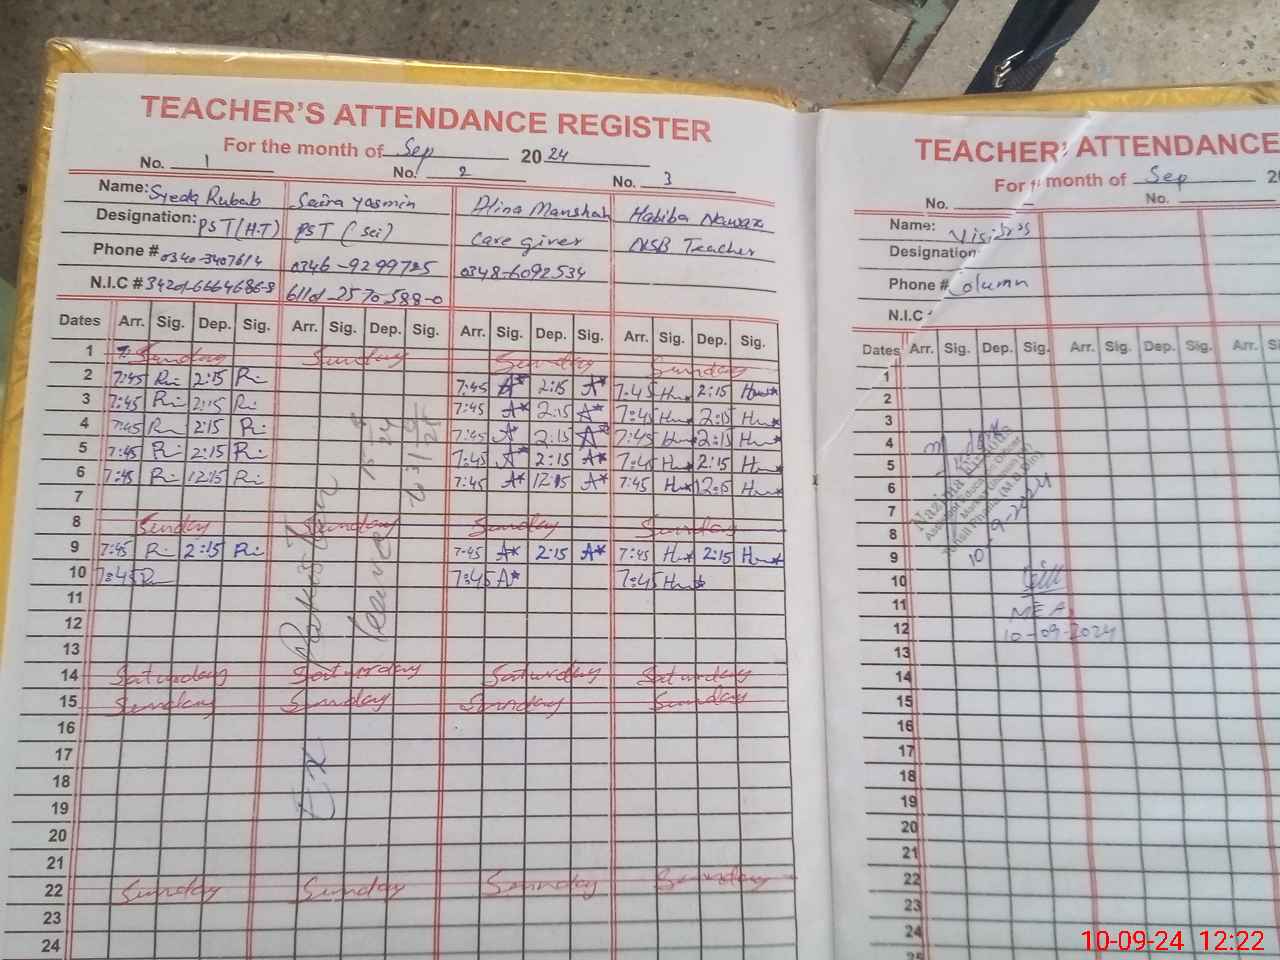 TEACHER'S ATTENDANCE REGISTER
For the month of Sep 2024
No. 1 No. 2 No. 3
Name: Syeda Rubab Saira Yasmin Alina Manshah Habiba Nawaz
Designation: PST (H.T) PST (Sci) Care giver NSB Teacher
Phone # 0340-3407614 0346-9299725 0348-6092534
N.I.C #
Dates Arr. Sig. Dep. Sig. Arr. Sig. Dep. Sig. Arr. Sig. Dep. Sig. Arr. Sig. Dep. Sig.
1 Sunday Sunday Sunday Sunday
2 7:45 2:15 7:45 A* 2:15 A* 7:45 2:15
3 7:45 2:15 7:45 A* 2:15 A* 7:45 2:15
4 7:45 2:15 7:45 A* 2:15 A* 7:45 2:15
5 7:45 2:15 7:45 A* 2:15 A* 7:45 2:15
6 7:45 12:15 7:45 A* 12:15 A* 7:45 12:15
7
8 Sunday Sunday Sunday Sunday
9 7:45 2:15 7:45 A* 2:15 A* 7:45 2:15
10 7:45 7:45 A* 7:45
11
12
13
14 Saturday Saturday Saturday Saturday
15 Sunday Sunday Sunday Sunday
16
17
18
19
20
21
22 Sunday Sunday Sunday Sunday
23
24
Ex Pakistan leave
TEACHER'S ATTENDANCE
For month of Sep 20
No. No.
Name: Visitors
Designation
Phone # Column
N.I.C
Dates Arr. Sig. Dep. Sig. Arr. Sig. Dep. Sig. Arr.
1
2
3
4
5
6
7
8
9
10
11
12
13
14
15
16
17
18
19
20
21
22
23
24
25
Nazima
10-9-2024
MEA
10-09-2024
10-09-24 12:22